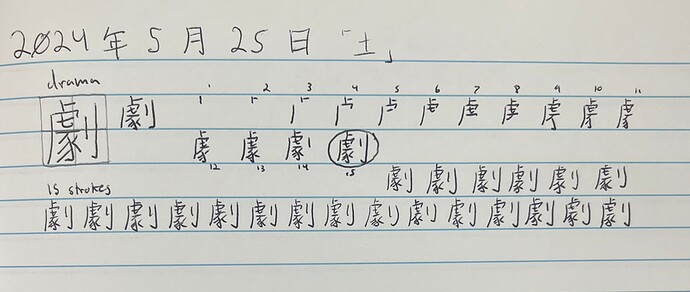 2024年5月25日「土」
drama 1 2 3 4 5 6 7 8 9 10 11
劇 劇
劇
12 13 14 15
劇 劇 劇 劇 劇 劇
15 strokes
劇 劇 劇 劇 劇 劇 劇 劇 劇 劇 劇 劇 劇 劇 劇